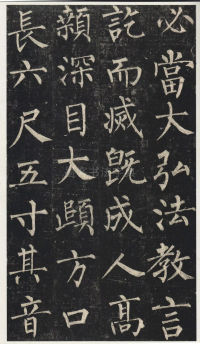 必當大弘法教言
訖而滅既成人髙
顙深目大頤方口
長六尺五寸其音